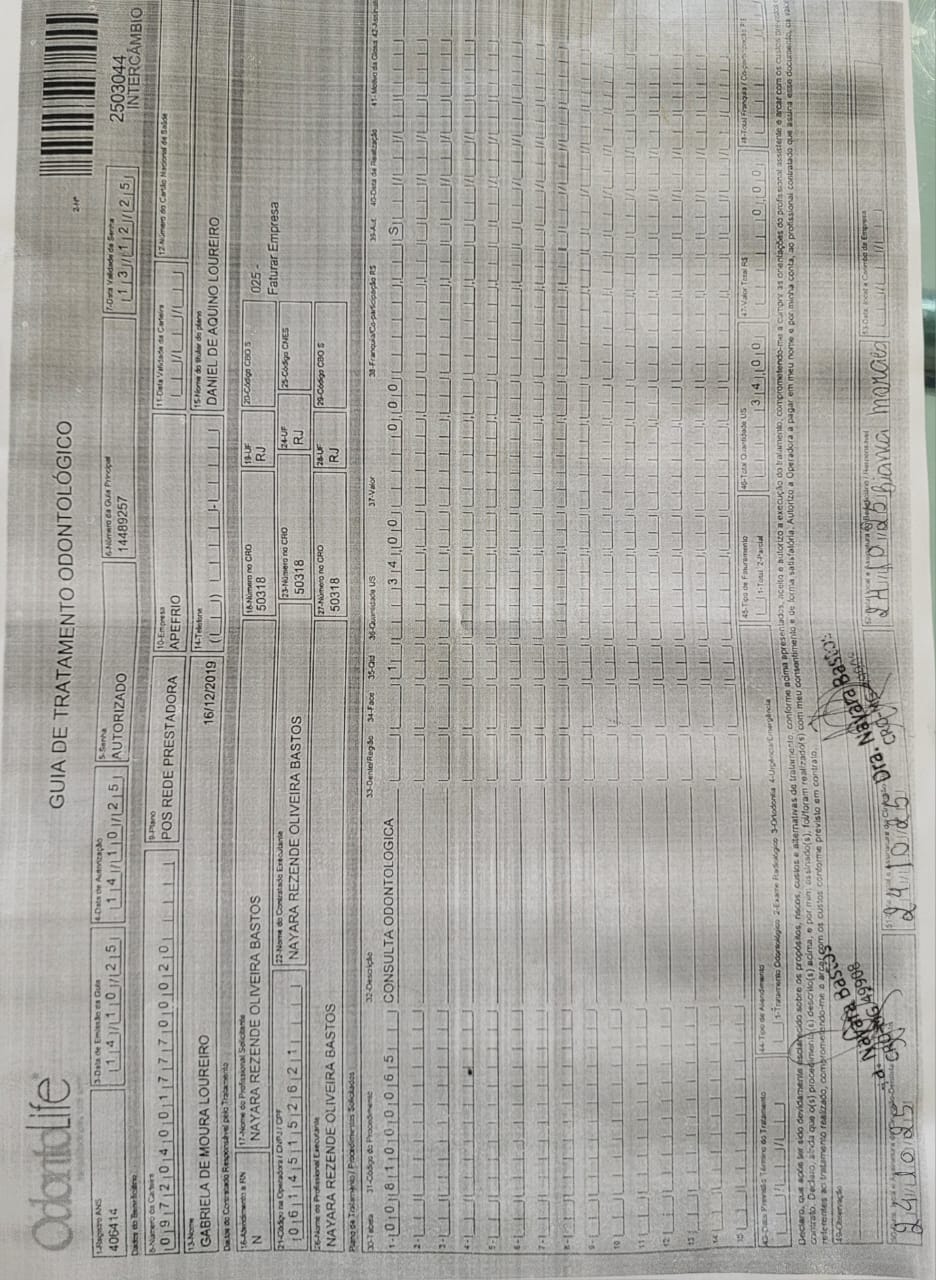 OdontoLife
GUIA DE TRATAMENTO ODONTOLÓGICO
2-Nº
2503044
INTERCÂMBIO
1-Registro ANS
406414
3-Data de Emissão da Guia
14/10/25
4-Data de Autorização
14/10/25
5-Senha
AUTORIZADO
6-Número da Guia Principal
14489257
7-Data Validade da Senha
13/12/25
Dados do Beneficiário
8-Número da Carteira
09720400177700020
9-Plano
POS REDE PRESTADORA
10-Empresa
APEFRIO
11-Data Validade da Carteira
12-Número do Cartão Nacional de Saúde
13-Nome
GABRIELA DE MOURA LOUREIRO
16/12/2019
14-Telefone
15-Nome do titular do plano
DANIEL DE AQUINO LOUREIRO
Dados do Contratado Responsável pelo Tratamento
16-Atendimento a RN
N
17-Nome do Profissional Solicitante
NAYARA REZENDE OLIVEIRA BASTOS
18-Número no CRO
50318
19-UF
RJ
20-Código CBO S
025 -
Faturar Empresa
21-Código na Operadora / CNPJ / CPF
06145152621
22-Nome do Contratado Executante
NAYARA REZENDE OLIVEIRA BASTOS
23-Número no CRO
50318
24-UF
RJ
25-Código CNES
26-Nome do Profissional Executante
NAYARA REZENDE OLIVEIRA BASTOS
27-Número no CRO
50318
28-UF
RJ
29-Código CBO S
Plano de Tratamento / Procedimentos Solicitados
30-Tabela 31-Código do Procedimento 32-Descrição 33-Dente/Região 34-Face 35-Qtd 36-Quantidade US 37-Valor 38-Franquia/Co-participação R$ 39-Aut 40-Data de Realização 41-Motivo da Glosa
1- 00 81000065 CONSULTA ODONTOLOGICA 1 34,00 0,00 S
2-
3-
4-
5-
6-
7-
8-
9-
10
11
12
13
14
15
43-Data Previsão Término do Tratamento
44-Tipo de Atendimento
1-Tratamento Odontológico 2-Exame Radiológico 3-Ortodontia 4-Urgência/Emergência
45-Tipo de Faturamento
1-Total 2-Parcial
46-Total Quantidade US
34,00
47-Valor Total R$
0,00
48-Total Franquia / Co-participação R$
Declaro, que após ter sido devidamente esclarecido sobre os propósitos, riscos, custos e alternativas de tratamento, conforme acima apresentados, aceito e autorizo a execução do tratamento, comprometendo-me a cumprir as orientações do profissional assistente e arcar com os custos
contrato. Declaro, ainda que o(s) procedimento(s) descrito(s) acima, e por mim assinado(s), foi/foram realizado(s) com meu consentimento e de forma satisfatória. Autorizo a Operadora a pagar em meu nome e por minha conta, ao profissional contratado que assina esse documento,
referentes ao tratamento realizado, comprometendo-me a arcar com os custos conforme previsto em contrato.
49-Observação
Nayara Bastos
CRO-MG 49908
24/10/25
24/10/25
Dra. Nayara Bastos
53-Data, local e Carimbo da Empresa